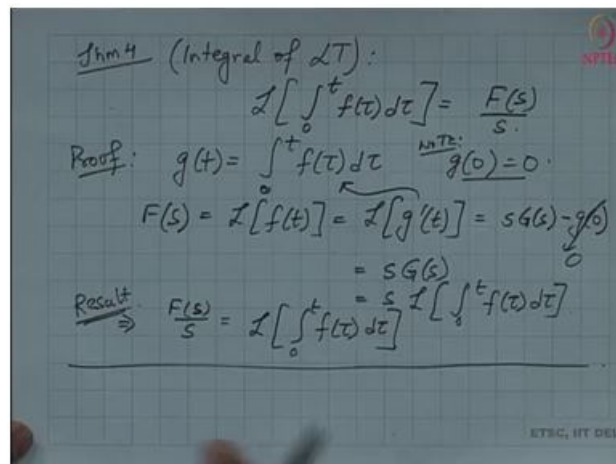 Thm 4 (Integral of LT):
ℒ[∫₀ᵗ f(τ)dτ] = F(s)/s.
Proof: g(t) = ∫₀ᵗ f(τ)dτ NOTE: g(0) = 0.
F(s) = ℒ[f(t)] = ℒ[g'(t)] = sG(s) - g(0) → 0
= sG(s)
= s ℒ[∫₀ᵗ f(τ)dτ]
Result ⇒ F(s)/s = ℒ[∫₀ᵗ f(τ)dτ]
NPTEL
ETSC, IIT DEL